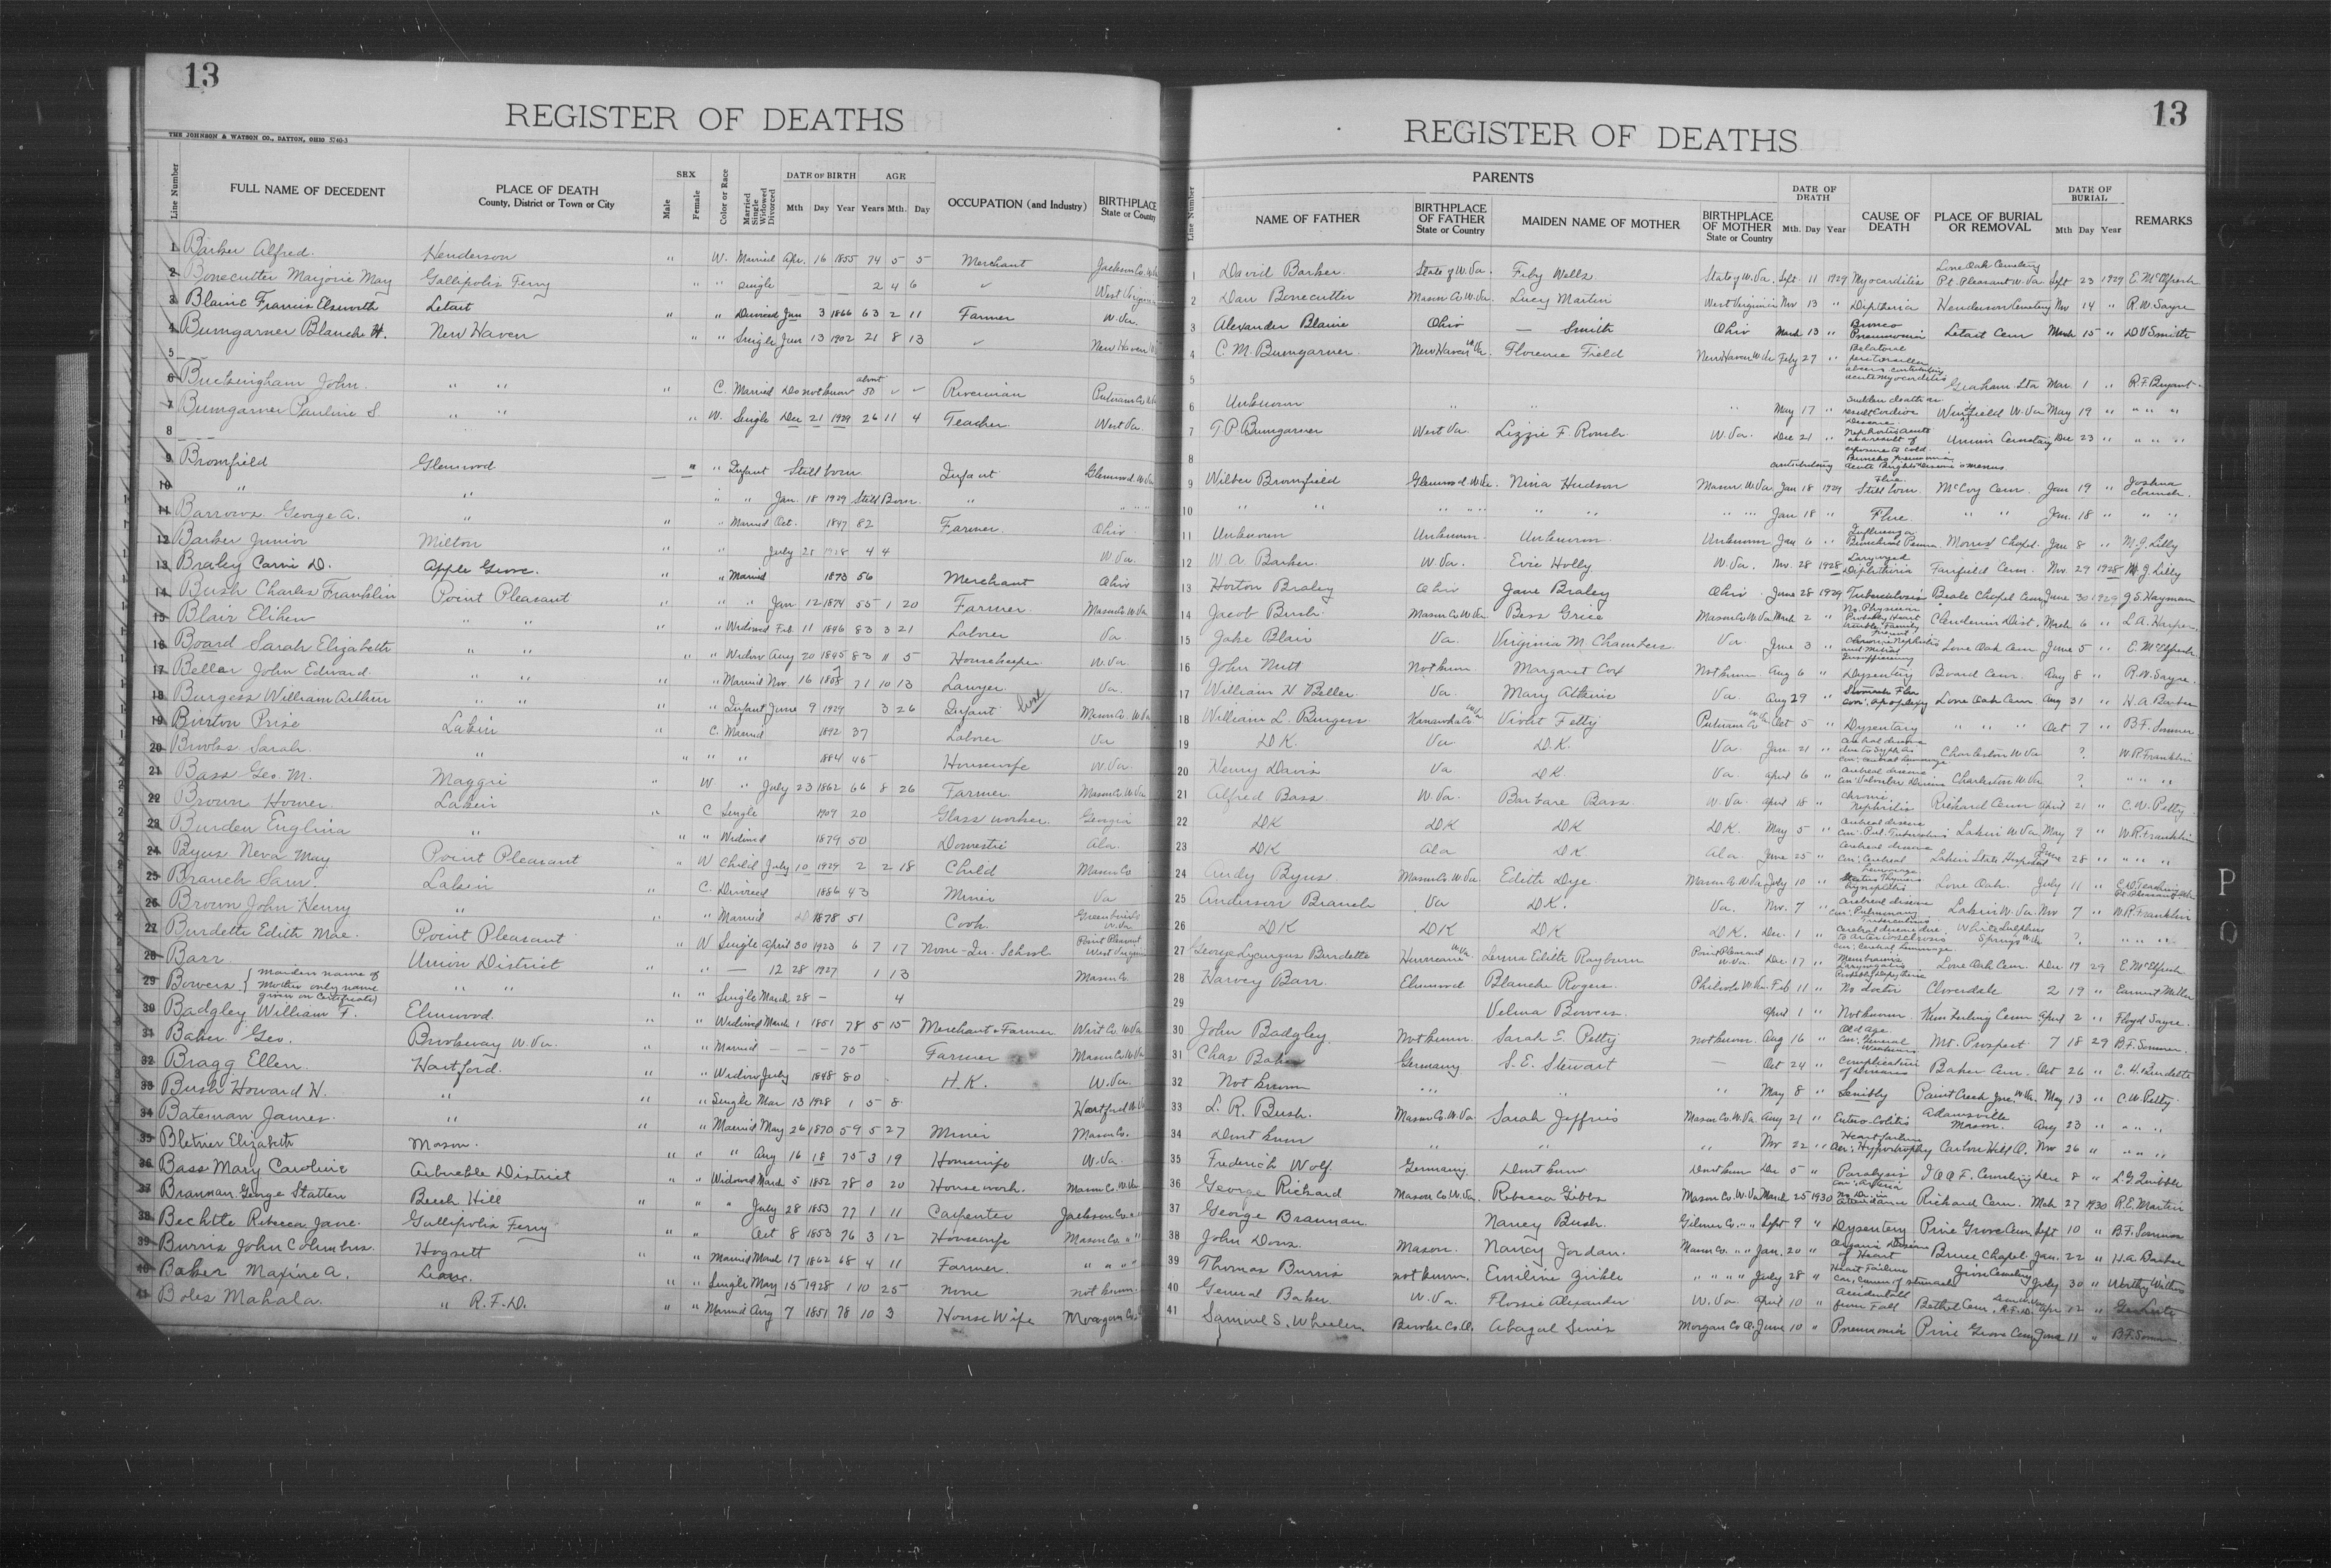 13
REGISTER OF DEATHS
THE JOHNSON & WATSON CO., DAYTON, OHIO 5740-3
Line Number
FULL NAME OF DECEDENT
PLACE OF DEATH
County, District or Town or City
SEX
Male
Female
Color or Race
Married Single Widowed Divorced
DATE OF BIRTH
Mth Day Year
AGE
Years Mth. Day
OCCUPATION (and Industry)
BIRTHPLACE
State or Country
1 Barker Alfred. Henderson " W. Married Apr. 16 1855 74 5 5 Merchant Jackson Co.
2 Bonecutter Marjorie May Gallipolis Ferry " " single 2 4 6 West Virginia
3 Blaine Francis Elsworth Letart " " Divorced Jan 3 1866 63 2 11 Farmer W. Va.
4 Bumgarner Blanch H. New Haven " " Single Jun 13 1902 21 8 13 New Haven
5
6 Buckingham John. " " " C. Married Do not know about 50 Riverman Putnam Co
7 Bumgarner Pauline S. " " " W. Single Dec 21 1929 26 11 4 Teacher. West Va.
8
9 Bromfield Glenwood " " Infant Still born Infant Glenwood W. Va
10 " " " Jan. 18 1929 Still Born. "
11 Barrows George A. " " " Married Oct. 1847 82 Farmer. Ohio
12 Barker Junior Milton " " July 28 1928 4 4 W. Va.
13 Braley Carvi D. Apple Grove. " " Married 1873 56 Merchant Ohio
14 Bush Charles Franklin Point Pleasant " " " Jan 12 1874 55 1 20 Farmer. Mason Co W. Va
15 Blair Elihew " " " " Widowed Feb. 11 1846 83 3 21 Laborer Va
16 Board Sarah Elizabeth " " " " Widow Aug 20 1845 83 11 5 Housekeeper W. Va.
17 Beller John Edward. " " " " Married Nov. 16 1858 71 10 13 Lawyer Va.
18 Burgess William Arthur " " " " Infant June 9 1929 3 26 Infant Mason Co. W. Va
19 Burton Price Lakin " C. Married 1892 37 Laborer Va
20 Brooks Sarah. " " " " 1884 45 Housewife W. Va.
21 Bass Geo. M. Maggie " W " July 23 1862 66 8 26 Farmer. Mason Co. W. Va
22 Brown Homer Lakin " C Single 1909 20 Glass worker. Georgia
23 Burden Englina " " " Widowed 1879 50 Domestic Ala.
24 Byus Neva May Point Pleasant " W Child July 10 1929 2 2 18 Child Mason Co
25 Branch Sam. Lakin " C. Divorced 1886 43 Miner Va
26 Brown John Henry " " " Married 1878 51 Cook. Greenbrier Co W. Va.
27 Burdette Edith Mae. Point Pleasant " W Single April 30 1923 6 7 17 None-In School Point Pleasant West Virginia
28 Barr. Union District " " — 12 28 1927 1 13 Mason Co.
29 Bowers { maiden name of mother only name given on certificate) " " " " Single March 28 - 4
30 Badgley William F. Elmwood. " " Widowed March 1 1851 78 5 15 Merchant + Farmer Wirt Co. W. Va
31 Baker Geo. Brookway W. Va. " " Married — — — 75 Farmer Mason Co W. Va
32 Bragg Ellen. Hartford. " " Widow July 1848 80 H.K. W. Va.
33 Bush Howard H. " " " Single Mar 13 1928 1 5 8 Hartford W. Va
34 Bateman James. " " " Married May 26 1870 59 5 27 Miner Mason Co.
35 Bletner Elizabeth Mason. " " " Aug 16 18 75 3 19 Housewife W. Va.
36 Bass Mary Caroline Arbuckle District " " Widowed March 5 1852 78 0 20 House work. Mason Co. W. Va
37 Brannan George Statten Beech Hill " " " July 28 1853 77 1 11 Carpenter Jackson Co. "
38 Bechtle Rebecca Jane. Gallipolis Ferry " " Oct 8 1853 76 3 12 Housewife Mason Co. " "
39 Burris John Columbus. Hogsett " " Married March 17 1862 68 4 11 Farmer. " " " "
40 Baker Maxine A. Leon. " " Single May 15 1928 1 10 25 none not known.
41 Boles Mahala. " R.F.D. " " Married Aug 7 1851 78 10 3 House Wife Morgan Co.
13
REGISTER OF DEATHS
Line Number
PARENTS
NAME OF FATHER
BIRTHPLACE OF FATHER
State or Country
MAIDEN NAME OF MOTHER
BIRTHPLACE OF MOTHER
State or Country
DATE OF DEATH
Mth. Day Year
CAUSE OF DEATH
PLACE OF BURIAL OR REMOVAL
DATE OF BURIAL
Mth Day Year
REMARKS
1 David Barker. State of W. Va. Feby Wells State of W. Va. Sept. 11 1929 Myocarditis Lone Oak Cemetery Pt. Pleasant W. Va. Sept 23 1929 E. McElfresh
2 Dan Bonecutter Mason Co. W. Va. Lucy Martin West Virginia Nov 13 " Diptheria Henderson Cemetery Nov 14 " R. W. Sayre
3 Alexander Blaine Ohio — Smith Ohio March 13 " Bronco Pneumonia Letart Cem March 15 " D. V. Smith
4 C. M. Bumgarner. New Haven W. Va. Florence Field New Haven W. Va Feby 27 " Belatoral peritonsillar absess contributing acute myocarditis
5 Graham Sta Mar. 1 " R. F. Bryant
6 Unknown " " " May 17 " Sudden death as result Cordiox Disease. Winfield W. Va May 19 " " " "
7 T P Bumgarner West Va. Lizzie F. Roush. W. Va. Dec 21 " Nephritis acute as a result of exposure to cold. Union Cemetery Dec 23 " " " "
8 contributing
9 Wilber Bromfield Glenwood. W. Va. Nina Hudson Mason. W. Va Jan 18 1929 Flue. Still born McCoy Cem. Jan 19 " Joshua
10 " " " " " " " " " Jan 18 " Flue. " " Jan. 18 " " "
11 Unknown Unknown. Unknown. Unknown Jan 6 " Influenza Bronchial Pneum. Morris Chapel. Jan 8 " M. J. Lilly
12 W. A. Barker. W. Va. Evie Holly W. Va. Nov. 28 1928 Laryngeal Diphtheria Fairfield Cem. Nov. 29 1928 M. J. Lilly
13 Horton Braley Ohio Jane Braley Ohio June 28 1929 Tuberculosis Beale Chapel Cem June 30 1929 J. S. Hayman
14 Jacob Bush Mason Co W. Va. Bess Grice Mason Co W. Va. March 2 " No Physician Probably Heart trouble. Family Clendenin Dist. March 6 " L. A. Harper.
15 Jake Blair Va. Virginia M Chambers Va June 3 " Chronic Nephritis and mitral Insufficiency Lone Oak Cem June 5 " E. McElfresh
16 John Nutt Not know. Margaret Cox Not know Aug 6 " Dysentery Board Cem. Aug 8 " R. W. Sayre.
17 William H Beller. Va. Mary Atkins Va Aug 29 " Stomach Flux con: apoplexy Lone Oak Cem. Aug 31 " H. A. Barker
18 William L. Burgess Kanawha Co. W. Va Violet Fetty Putnam Co W. Va Oct 5 " Dysentery " " " Oct 7 " B. F. Sommer.
19 D.K. Va D.K. Va. Jan. 21 " Cerebral disease due to Syphilis con: Cerebral hemorrage Charleston W. Va ? W. R. Franklin
20 Henry Davis Va D.K. Va. April 6 " Cerebral disease con: Valvular Disease Charleston W. Va ? " " "
21 Alfred Bass. W. Va. Barbara Bass W. Va. April 18 " Chronic nephritis Richard Cem April 21 " C. W. Petty
22 DK DK DK D.K. May 5 " Cerebral disease con: Pul. Tuberculosis Lakin W. Va May 9 " W. R. Franklin
23 DK Ala DK Ala June 25 " Cerebral disease con: Cerebral hemorrage Lakin State Hospital June 28 " " " "
24 Andy Byus. Mason Co. W. Va. Edith Dye Mason Co W Va July 10 " Status Thymus Lymphatics Lone Oak. July 11 "
25 Anderson Branch Va DK. Va. Nov. 7 " Cerebral disease con: Pulmonary Tuberculosis Lakin W. Va Nov 7 " W. R. Franklin
26 DK DK DK D.K. Dec. 1 " Cerebral disease due to arteriosclerosis con: Cerebral hemorrage. White Sulphur Springs W. Va. ? " " "
27 George Lycurgus Burdette Hurricane W. Va. Lenna Edith Rayburn Point Pleasant W. Va. Dec. 17 " Membranous Laryngitis Probably Diptheria Lone Oak Cem. Dec 19 29 E. McElfresh
28 Harvey Barr. Elmwood Blanche Rogers. Feb 11 " No doctor Cloverdale 2 19 " Earnest Miller
29 Velma Bowers. April 1 " Not known. Cem April 2 " Floyd Sayre.
30 John Badgley. Not known. Sarah E. Petty not known. Aug 16 " Old Age. Con: General Weakness Mt. Prospect 7 18 29 B. F. Sommer.
31 Chas Baker Germany S. E. Stewart — Oct 24 " Complication of diseases Baker Cem. Oct 26 " C. H. Burdette
32 Not known " " " May 8 " Senility Paint Creek Junc. W. Va. May 13 " C. W. Petty.
33 L. R. Bush. Mason Co. W. Va Sarah Jeffries Mason Co. W. Va Aug 21 " Entro-Colitis Adamsville Mason. Aug 23 " " " "
34 Dont know " " " Nov 22 " Heart failure Con: Hypertrophy Carlton Hill O. Nov 26 " " " "
35 Frederich Wolf. Germany. Dont know Dont know Dec 5 " Paralysis I O O F. Cemetery Dec 8 "
36 George Richard Mason Co. W. Va. Rebecca Gibbs Mason Co. W. Va March 25 1930 No Dr. in attendance Richard Cem. Mch 27 1930 R. E. Martin
37 George Brannan. Nancy Bush. Gilmer Co. " " Sept 9 " Dysentery Pine Grove Cem Sept 10 " B. F. Sommer
38 John Doss. Mason. Nancy Jordan. Mason Co. " " Jan. 20 " Organic Disease of Heart Bruce Chapel. Jan. 22 " H. A. Barker
39 Thomas Burris not known. Emiline Zirkle " " " " July 28 " Heart Failure Con, Cancer of stomach Cemetery July 30 " Worthy Withers
40 General Baker. W. Va. Flossie Alexander W. Va. April 10 " Accidentall from Fall Bethel Cem, R.F.D. Apr 12 "
41 Samuel S. Wheeler. Burke Co. O. Abagal Morgan Co O. June 10 " Pneumonia Pine Grove Cem June 11 " B. F. Sommer.